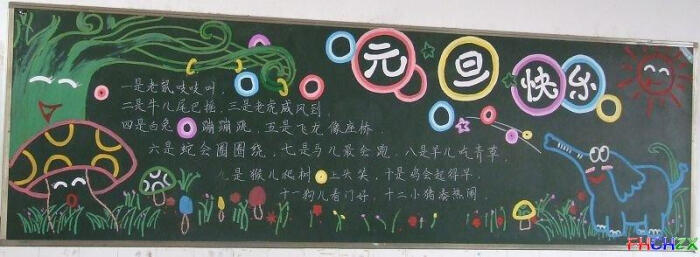 元旦快乐
一是老鼠吱吱叫.
二是牛儿尾巴摇,三是老虎威风到,
四是白兔 蹦蹦跳,五是飞龙像座桥.
六是蛇会圈圈绕,七是马儿最会跑,八是羊儿吃青草,
九是猴儿爬树 上头笑,十是鸡会起得早.
十一狗儿看门好,十二小猪凑热闹.
FHCHZX